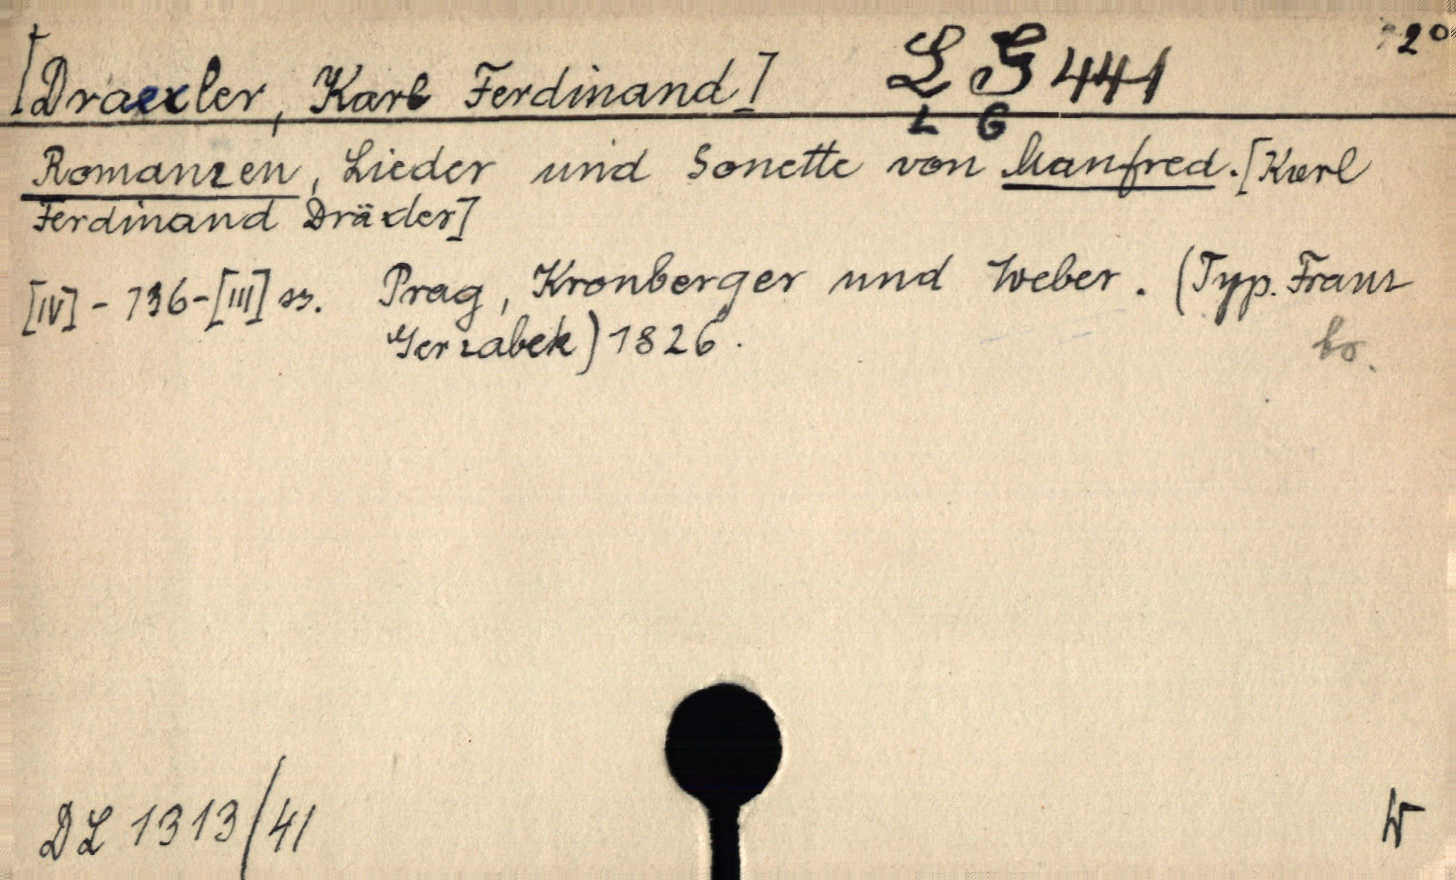 2°
[Draexler, Karl Ferdinand]   L G 441
L G
Romanzen, Lieder und Sonette von Manfred. [Karl
Ferdinand Dräxler]
[IV] - 136 - [III] ss. Prag, Kronberger und Weber. (Typ. Franz
Gerzabek) 1826.
DL 1313/41
W